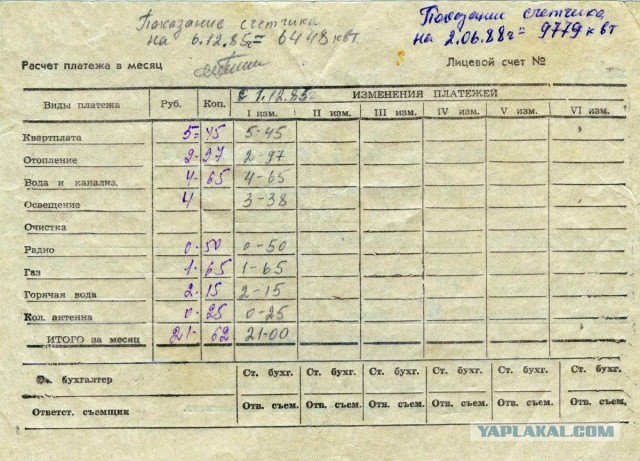 Показание счетчика
на 6.12.85г= 6448 квт
Показания счетчика
на 2.06.88г= 9779 квт
Расчет платежа в месяц
Лицевой счет №
Виды платежа Руб. Коп. с 1.12.85г ИЗМЕНЕНИЯ ПЛАТЕЖЕЙ
I изм. II изм. III изм. IV изм. V изм. VI изм.
Квартплата 5= 45 5-45
Отопление 2- 97 2-97
Вода и канализ. 4- 65 4-65
Освещение 4 3-38
Очистка
Радио 0- 50 0-50
Газ 1- 65 1-65
Горячая вода 2- 15 2-15
Кол. антенна 0- 25 0-25
ИТОГО за месяц 21- 62 21-00
бухгалтер Ст. бухг. Ст. бухг. Ст. бухг. Ст. бухг. Ст. бухг. Ст. бухг.
Ответст. съемщик Отв. съем. Отв. съем. Отв. съем. Отв. съем. Отв. съем. Отв. съем.
YAPLAKAL.COM